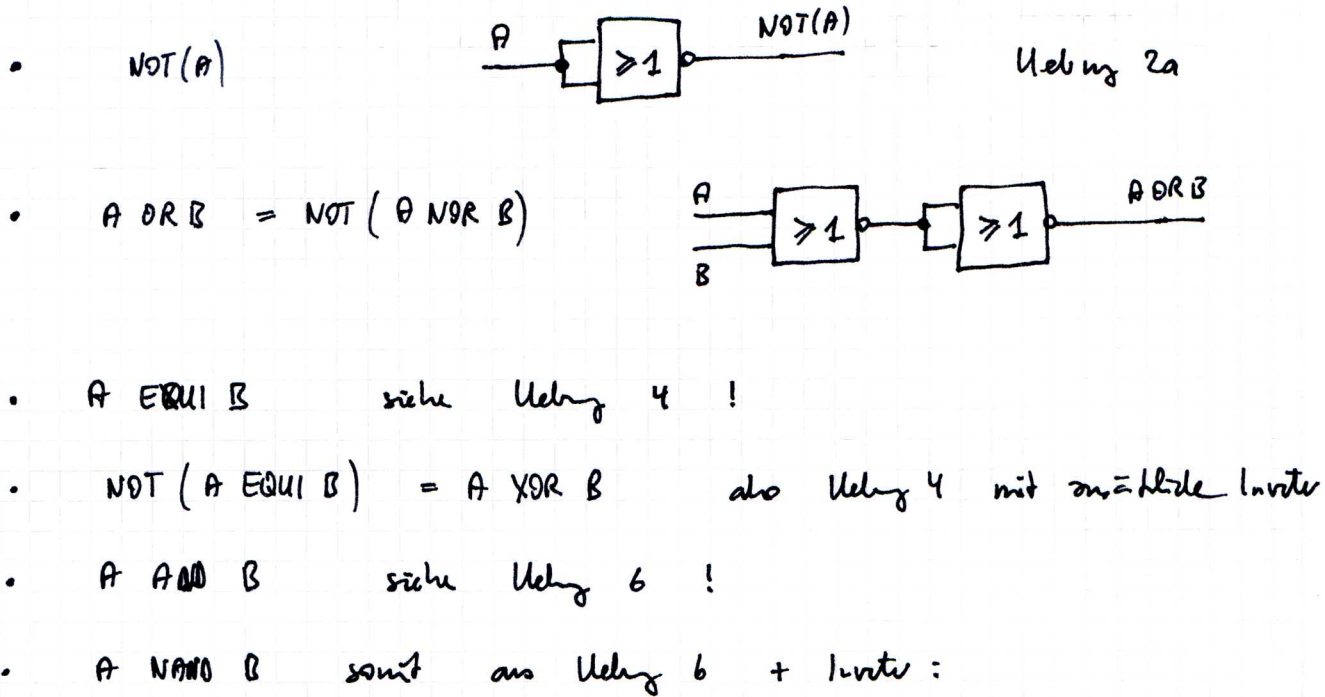 • NOT(A) A ≥1 NOT(A) Uebung 2a
• A OR B = NOT ( A NOR B) A B ≥1 ≥1 A OR B
• A EQUI B siehe Uebung 4 !
• NOT ( A EQUI B ) = A XOR B also Uebung 4 mit zusätzliche Inverter
• A AND B siehe Uebung 6 !
• A NAND B somit aus Uebung 6 + Inverter :